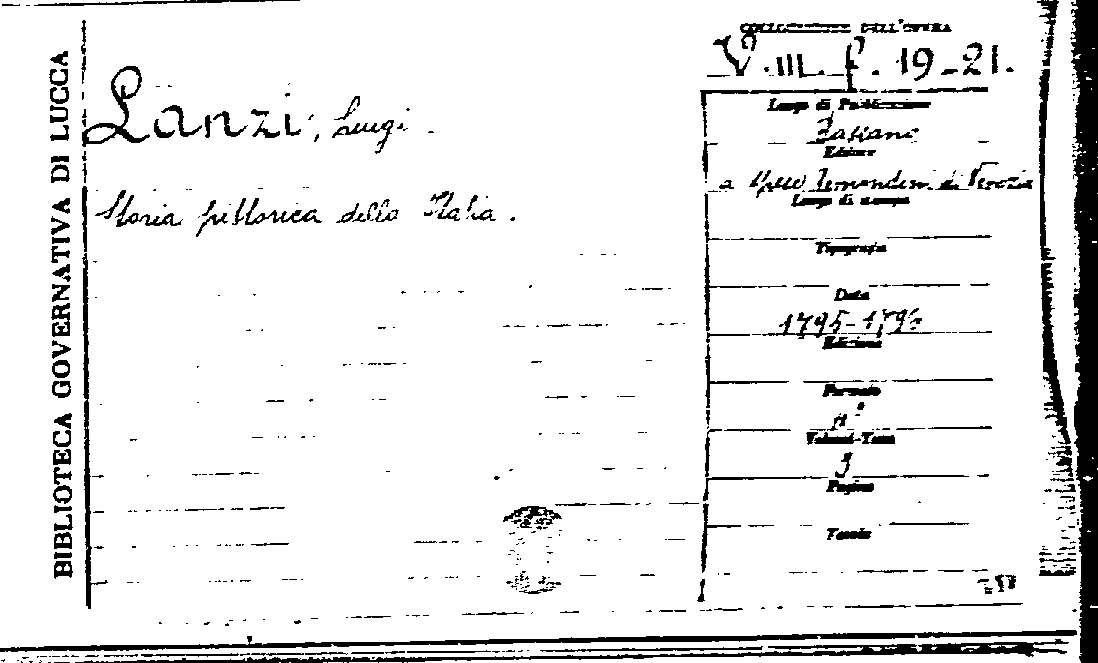 BIBLIOTECA GOVERNATIVA DI LUCCA
COLLOCAZIONE DELL'OPERA
V. III. f. 19-21.
Lanzi, Luigi.
Storia pittorica della Italia.
Luogo di Pubblicazione
Bassano
Editore
a spese Remondini di Venezia
Luogo di stampa
Tipografia
Data
1795-1796
Edizione
Formato
Volumi-Tomi
3
Pagine
Tavole